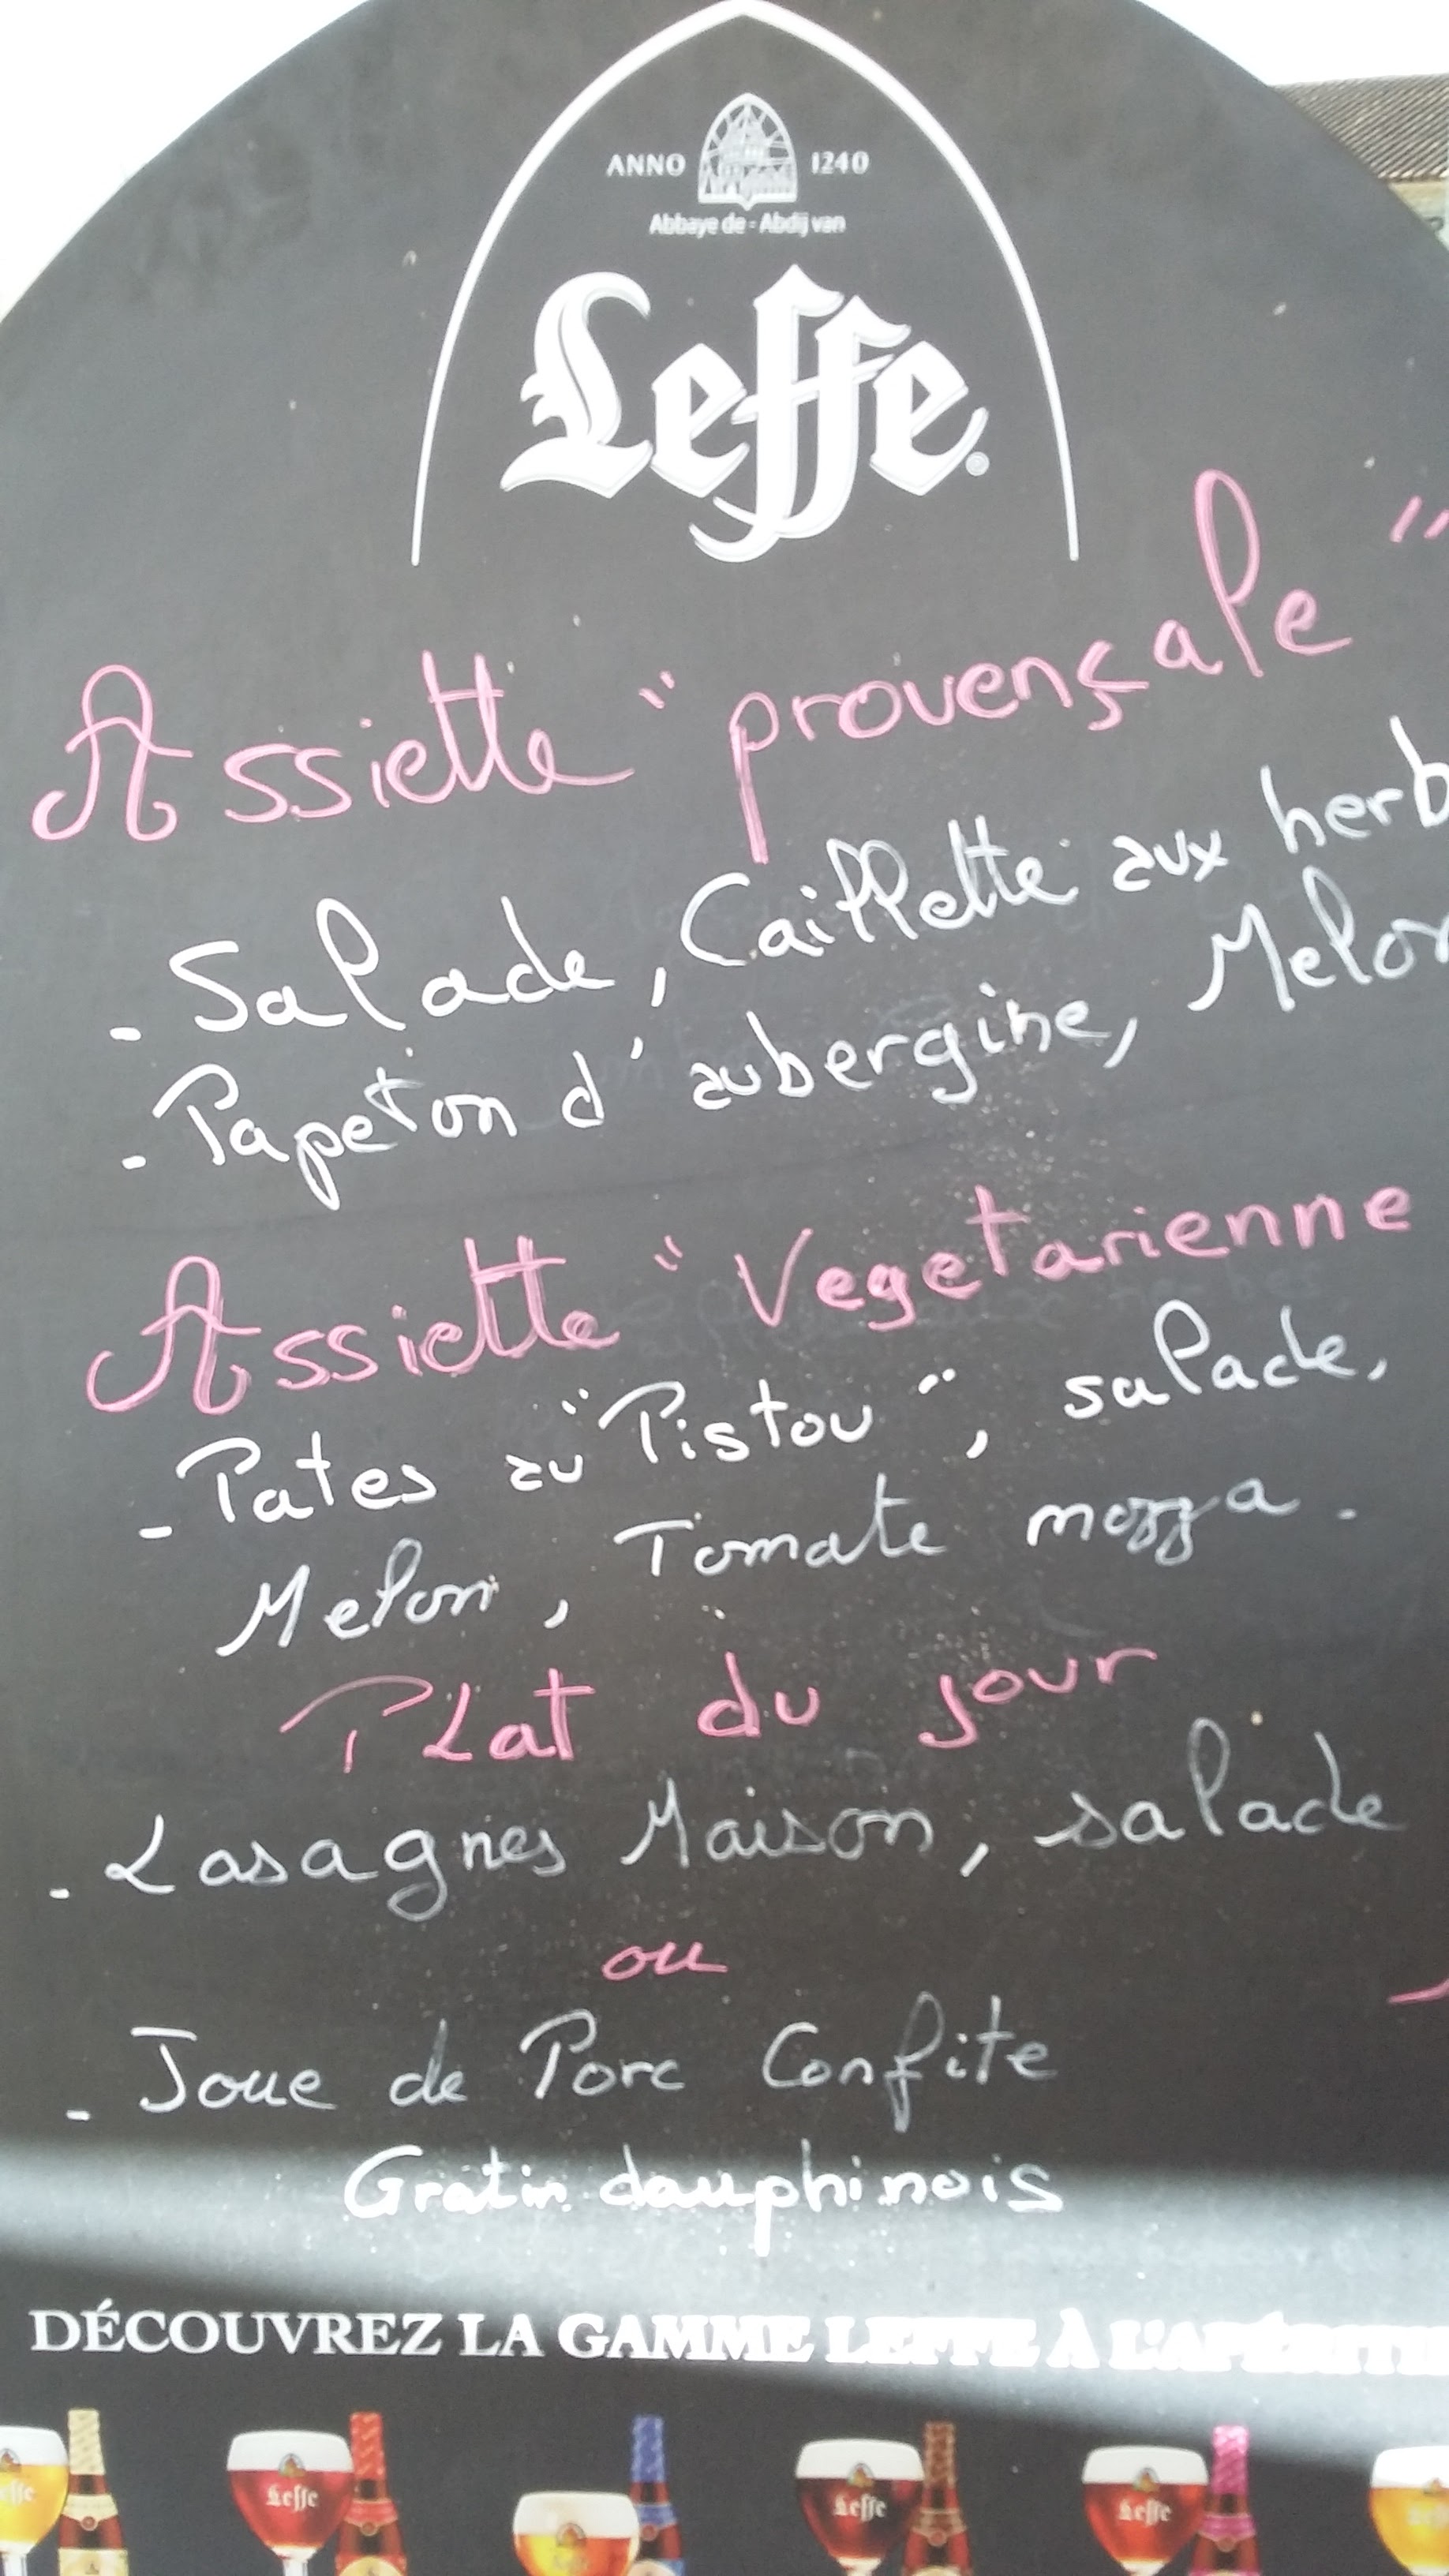 ANNO 1240
Abbaye de - Abdij van
Leffe
Assiette "provençale"
- Salade, Caillette aux herb
- Papeton d'aubergine, Melon
Assiette "Vegetarienne
- Pates au "Pistou", salade,
Melon, Tomate mozza.
PLat du jour
- Lasagnes Maison, salade
ou
- Joue de Porc Confite
Gratin dauphinois
DÉCOUVREZ LA GAMME LEFFE À L'APÉRITI
Leffe Leffe Leffe